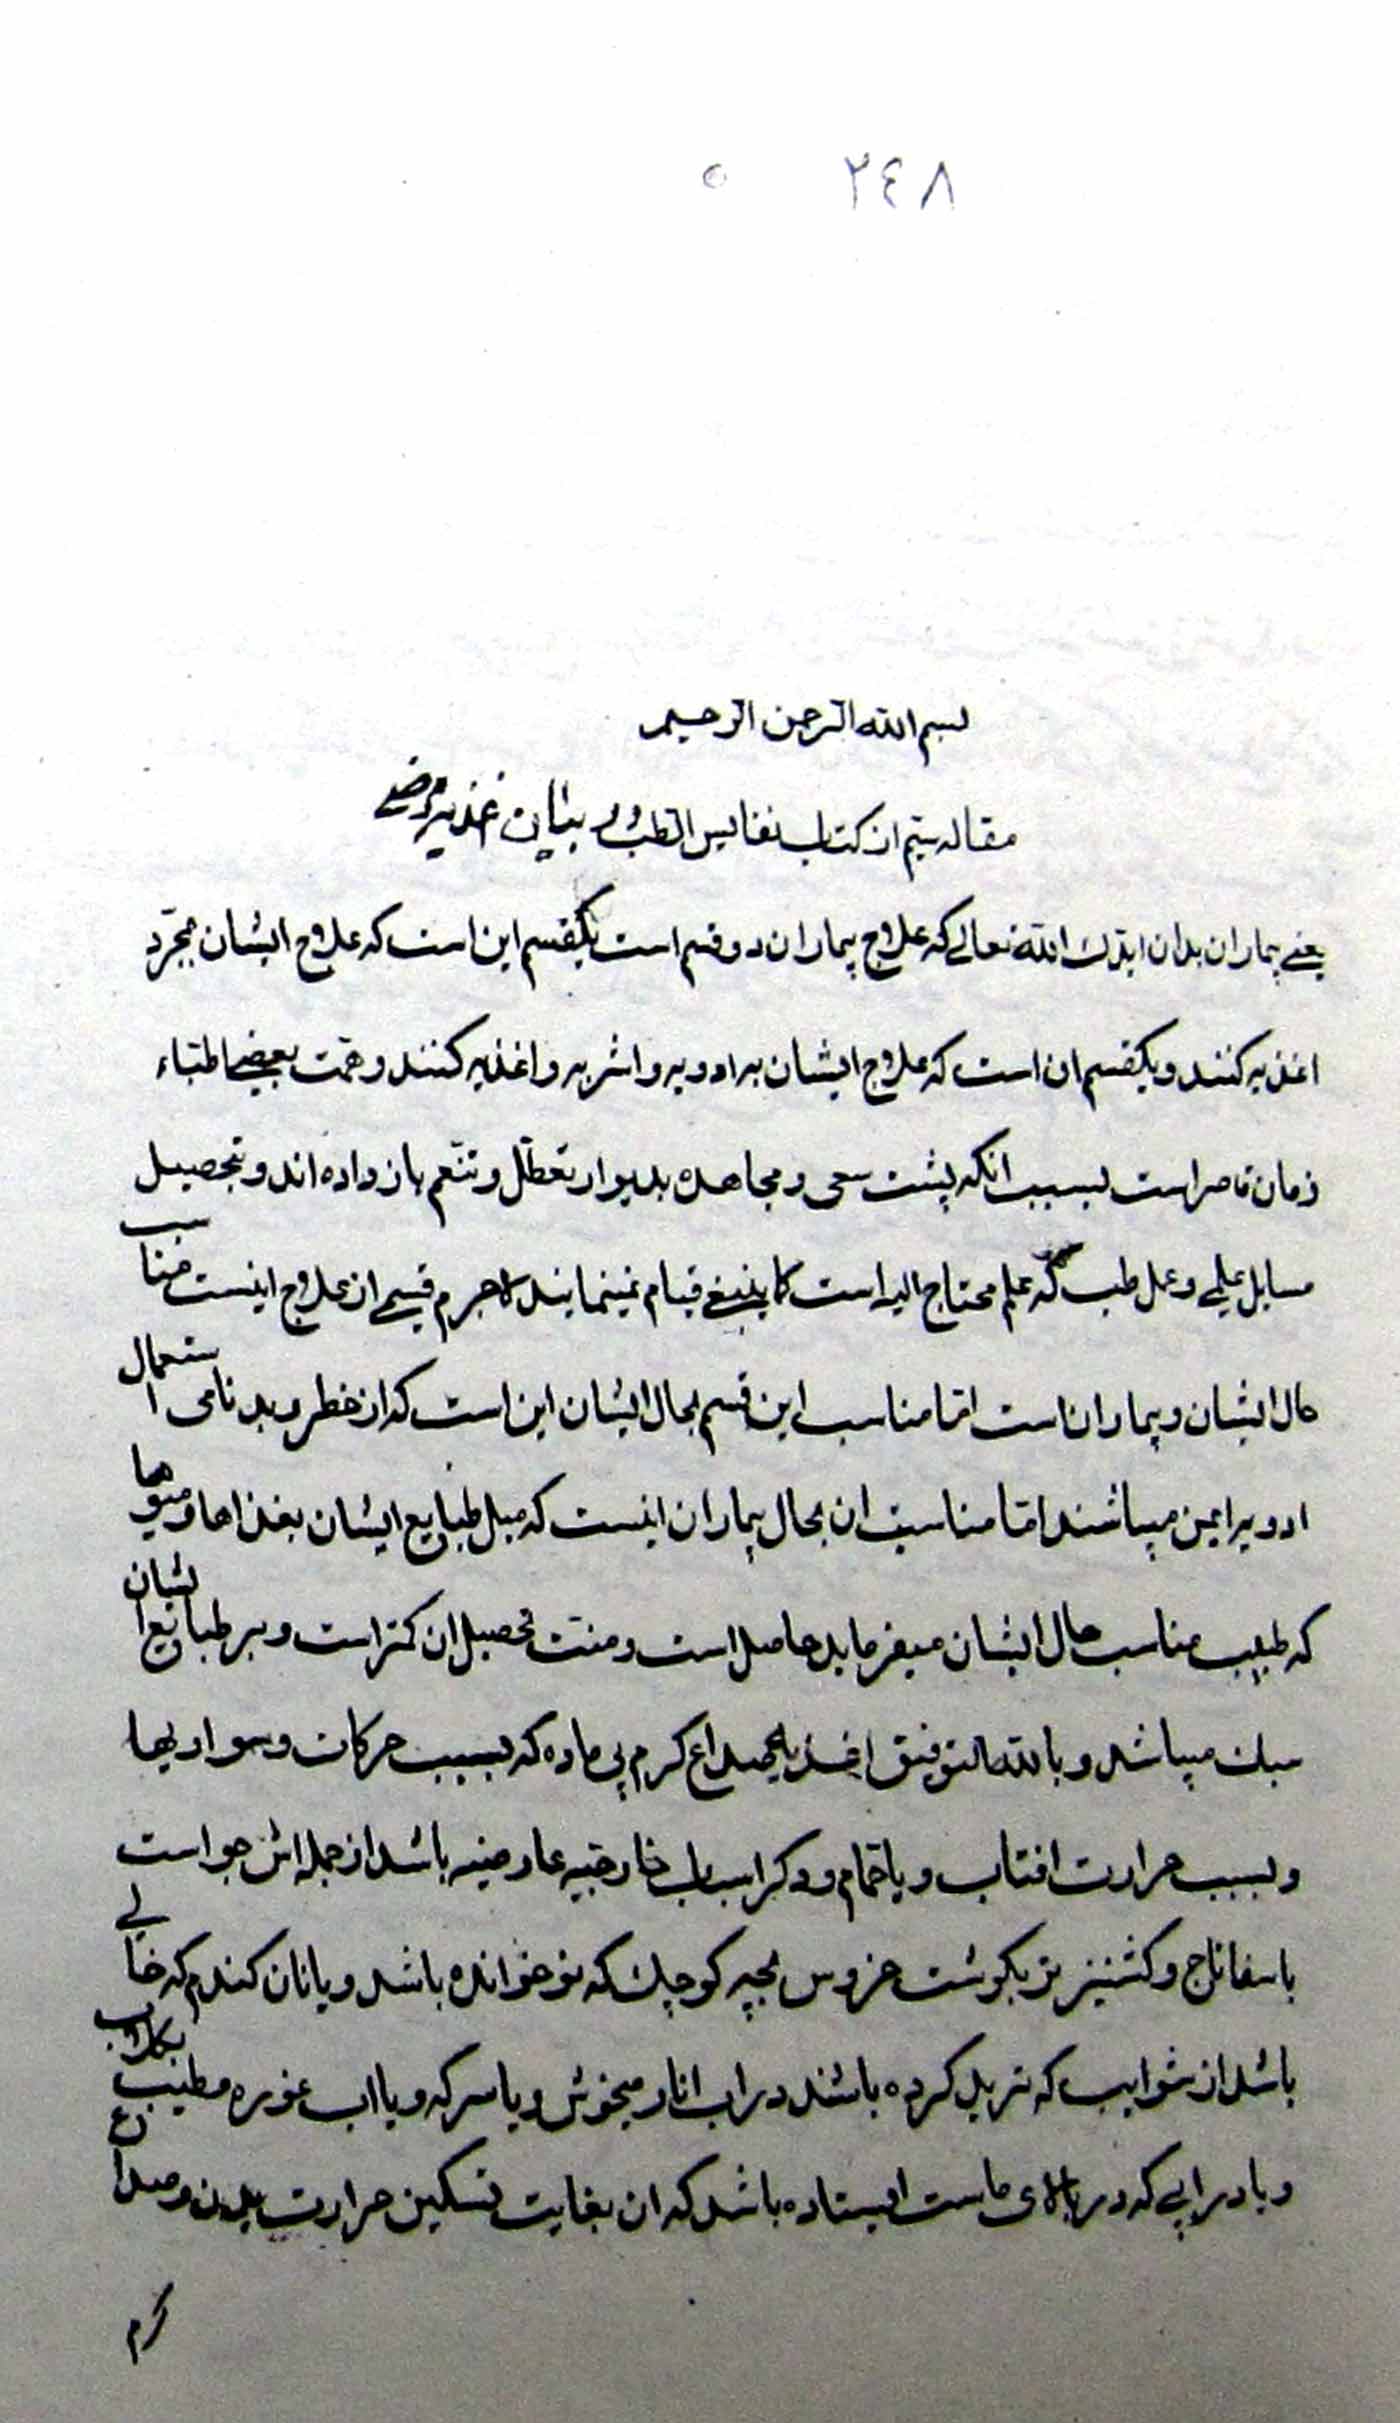 ٢٤٨
بسم الله الرحمن الرحیم
مقاله سیم از کتاب نفایس الطب در بیان اغذیه مرضی
یعنے بیماران بدان ایدك الله تعالی که علاج بیماران دو قسم است یکقسم این است که علاج ایشان بمجرّد
اغذیه کنند و یکقسم ان است که علاج ایشان به ادویه و اشربه و اغذیه کنند و همت بعضے اطبّاء
زمان قاصر است بسبب انکه پشت سعی و مجاهده بدیوار تعطّل و تنّعم باز داده اند و بتحصیل
مسایل علمے و عمل طب که علم محتاج الیه است کما ینبغے قیام نمینمایند لاجرم قسمے از علاج اینست مناسب
حال ایشان و بیماران است امّا مناسب این قسم بحال ایشان این است که از خطر و بدنامی استعمال
ادویه ایمن میباشند امّا مناسبت ان بحال بیماران اینست که میل طبایع ایشان بغذاها و میوها
که طبیب مناسب حال ایشان میفرماید حاصل است و منت تحصیل ان کمتر است و بر طبایع ایشان
سبك میباشد و بالله التوفیق اغذیه صداع کرم بی ماده که بسبب حرکات و سواریها
و بسبب حرارت افتاب و یا حمّام و دکر اسباب خارجیه عارضیه باشد از جمله اش جو است
با سفاناج و کشنیز تر بکوشت خروس بچه کوچك که نو خوانده باشد و یا نان کندم که خالے
باشد از شوایب که ترید کرده باشند در اب انار میخوش و یا سرکه و یا اب غوره مطیب بکلاب
و یا در ابی که در بالای ماست ایستاده باشد که ان بغایت تسکین حرارت بدن و صداع
کرم